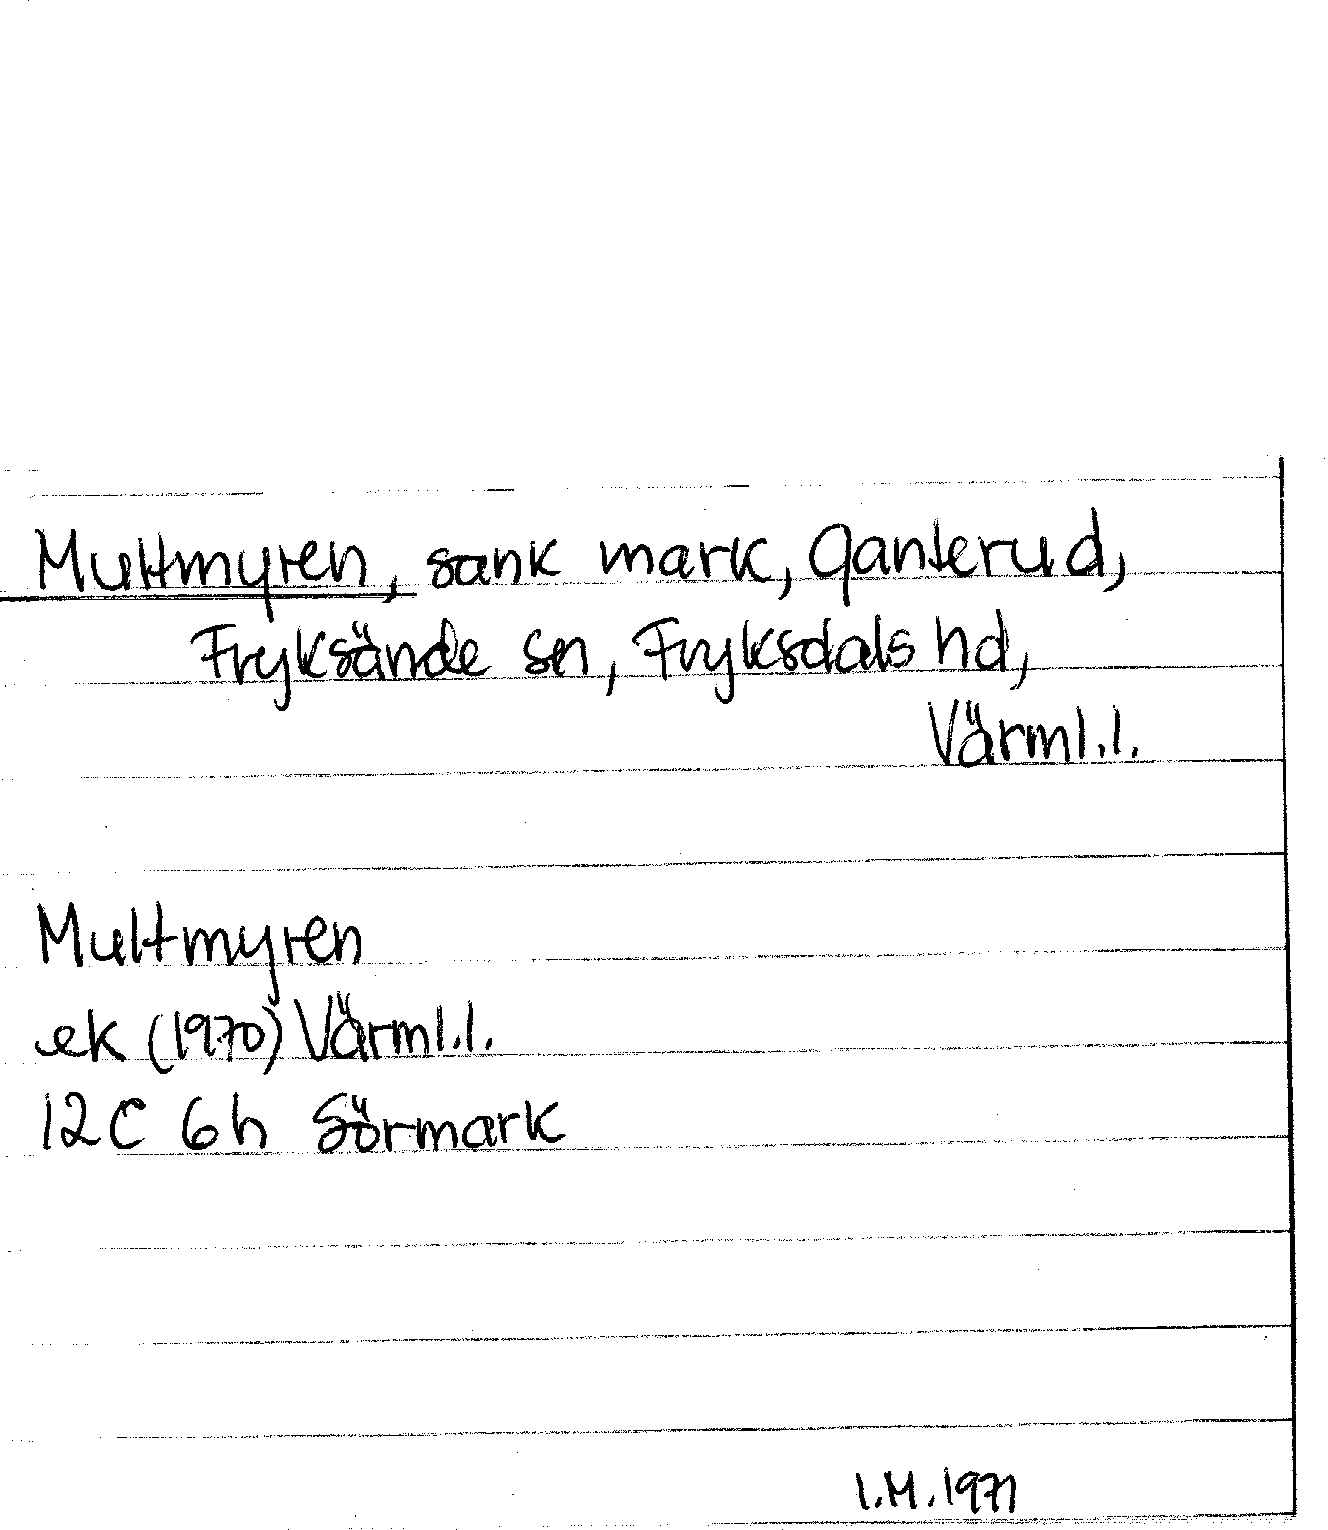 Multmyren, sank mark, Qanterud,
Fryksände sn, Fryksdals hd,
Värml.l.
Multmyren
ek (1970) Värml.l.
12C 6h Sörmark
I.M. 1971